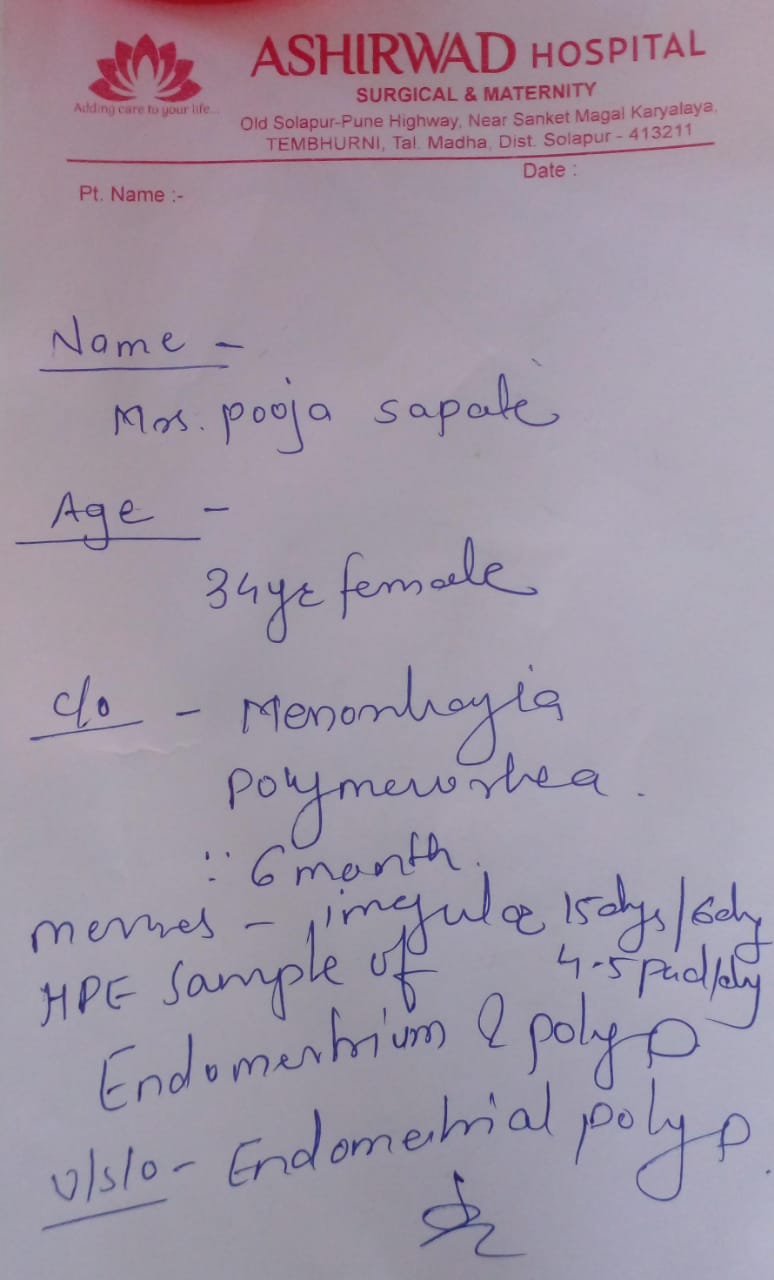 ASHIRWAD HOSPITAL
Adding care to your life...
SURGICAL & MATERNITY
Old Solapur-Pune Highway, Near Sanket Magal Karyalaya,
TEMBHURNI, Tal. Madha, Dist. Solapur - 413211
Date :
Pt. Name :-
Name -
Mrs. pooja sapate
Age -
34yr female
c/o - Menorrhagia
polymenorrhea.
6 month.
menses - irregular 15dys/6dy
4-5 pad/dy
HPE sample of
Endometrium & polyp
Endometrial polyp.